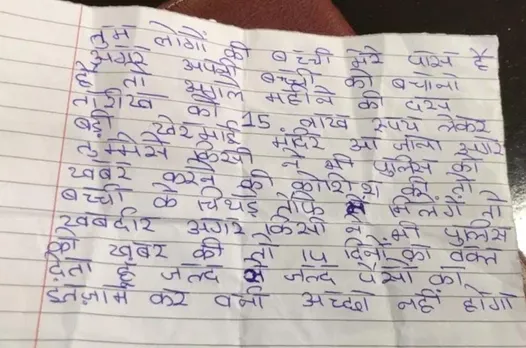 तुम लोगों की बच्ची मेरे पास है
अगर अपनी बच्ची को बचाना
है तो अगले महीने की दस
तारीख को 15 लाख रुपय लेकर
बड़ी खेर माई मंदिर आ जाना अगर
तुममेसे किसी ने भी पुलिस को
खबर करने की कोशिश की तो
बच्ची के चिथड़े मिलेंगे तो
खबरदार अगर किसी ने भी पुलिस
को खबर की तो 14 दिनों का वक्त
देता हूँ जल्द से जल्द पैसों का
इंतजाम कर वर्ना अच्छा नहीं होगा